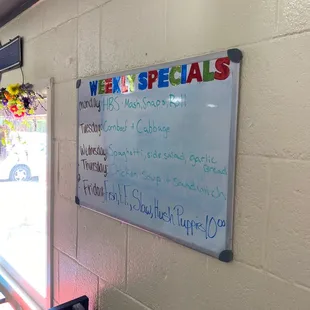 WEEKLY SPECIALS
Monday HBS Mash, Snaps, Roll
Tuesday Cornbeef & Cabbage
Wednesday Spaghetti, side salad, garlic
bread
Thursday Chicken Soup & Sandwich
Friday Fish, Slaw, Hush Puppies 10